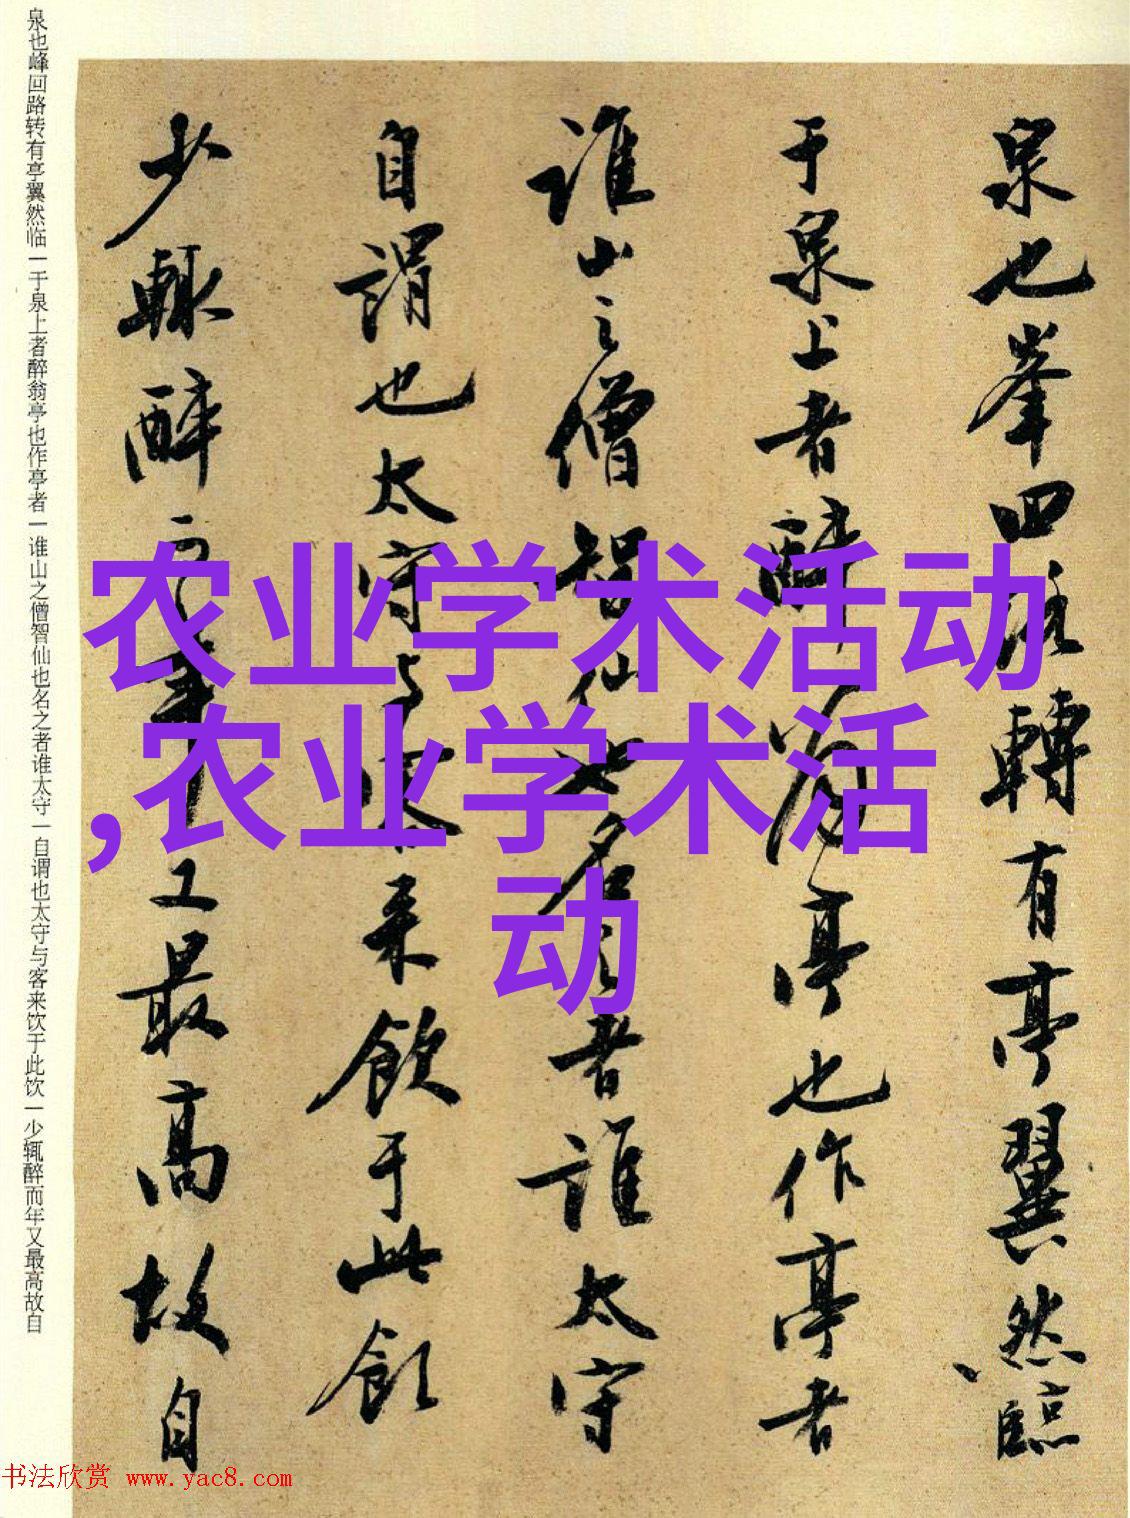 泉也峰回路转有亭翼然临一于泉上者醉翁亭也作亭者一谁山之僧智仙也名之者谁太守一自谓也太守与客来饮于此饮一少辄醉而年又最高故自
泉也峯回路轉有亭翼然臨
于泉上者醉翁亭也作亭者
誰山之僧智仙也名之者誰太守
自謂也太守与客来飲于此飲
少輒醉而年又最高故自
农业学术活动
,农业学术活
动
书法欣赏 www.yac8.com